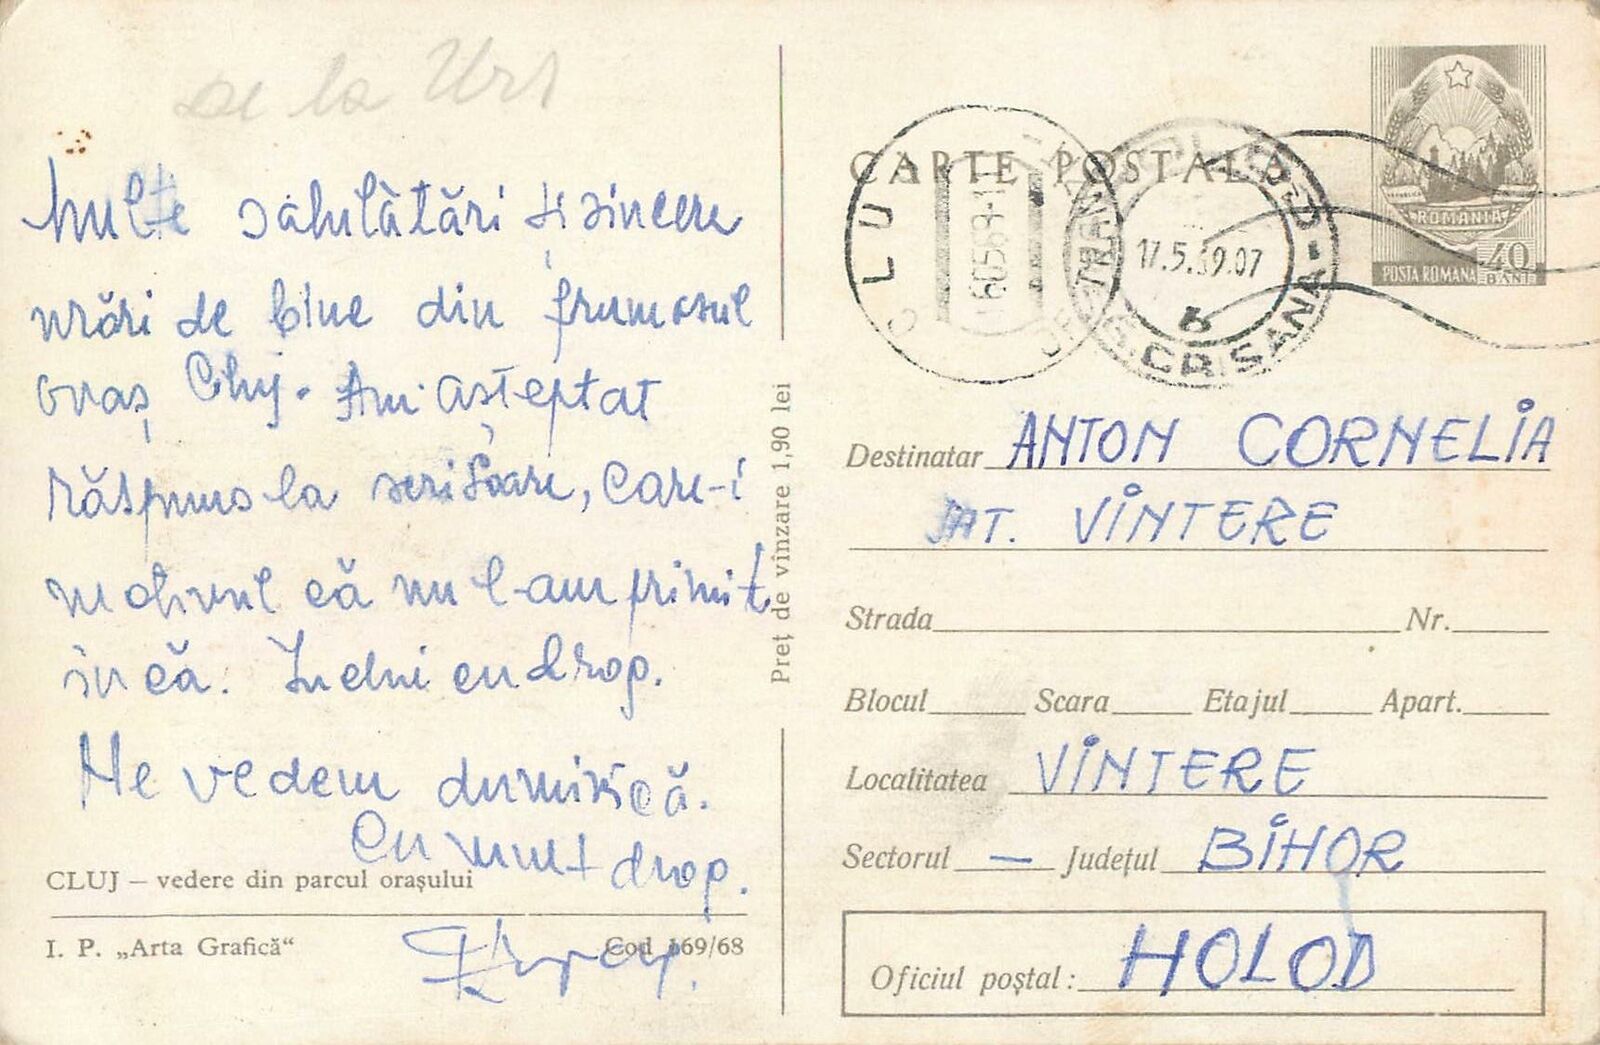 De la
Multe salutări și sincere
urări de bine din frumosul
oraș Cluj. Am așteptat
răspuns la scrisoare, care-i
motivul că nu l-am primit
încă. Închei cu drag.
Ne vedem duminică.
Cu mult drag.
CLUJ – vedere din parcul orașului
I. P. „Arta Grafică“
Cod 169/68
Preț de vînzare 1,90 lei
CARTE POSTALA
CLUJ
17.5.69.07
CRIȘANA
ROMANIA
POSTA ROMANA 40 BANI
Destinatar ANTON CORNELIA
SAT. VINTERE
Strada Nr.
Blocul Scara Etajul Apart.
Localitatea VINTERE
Sectorul — Județul BIHOR
Oficiul poștal: HOLOD